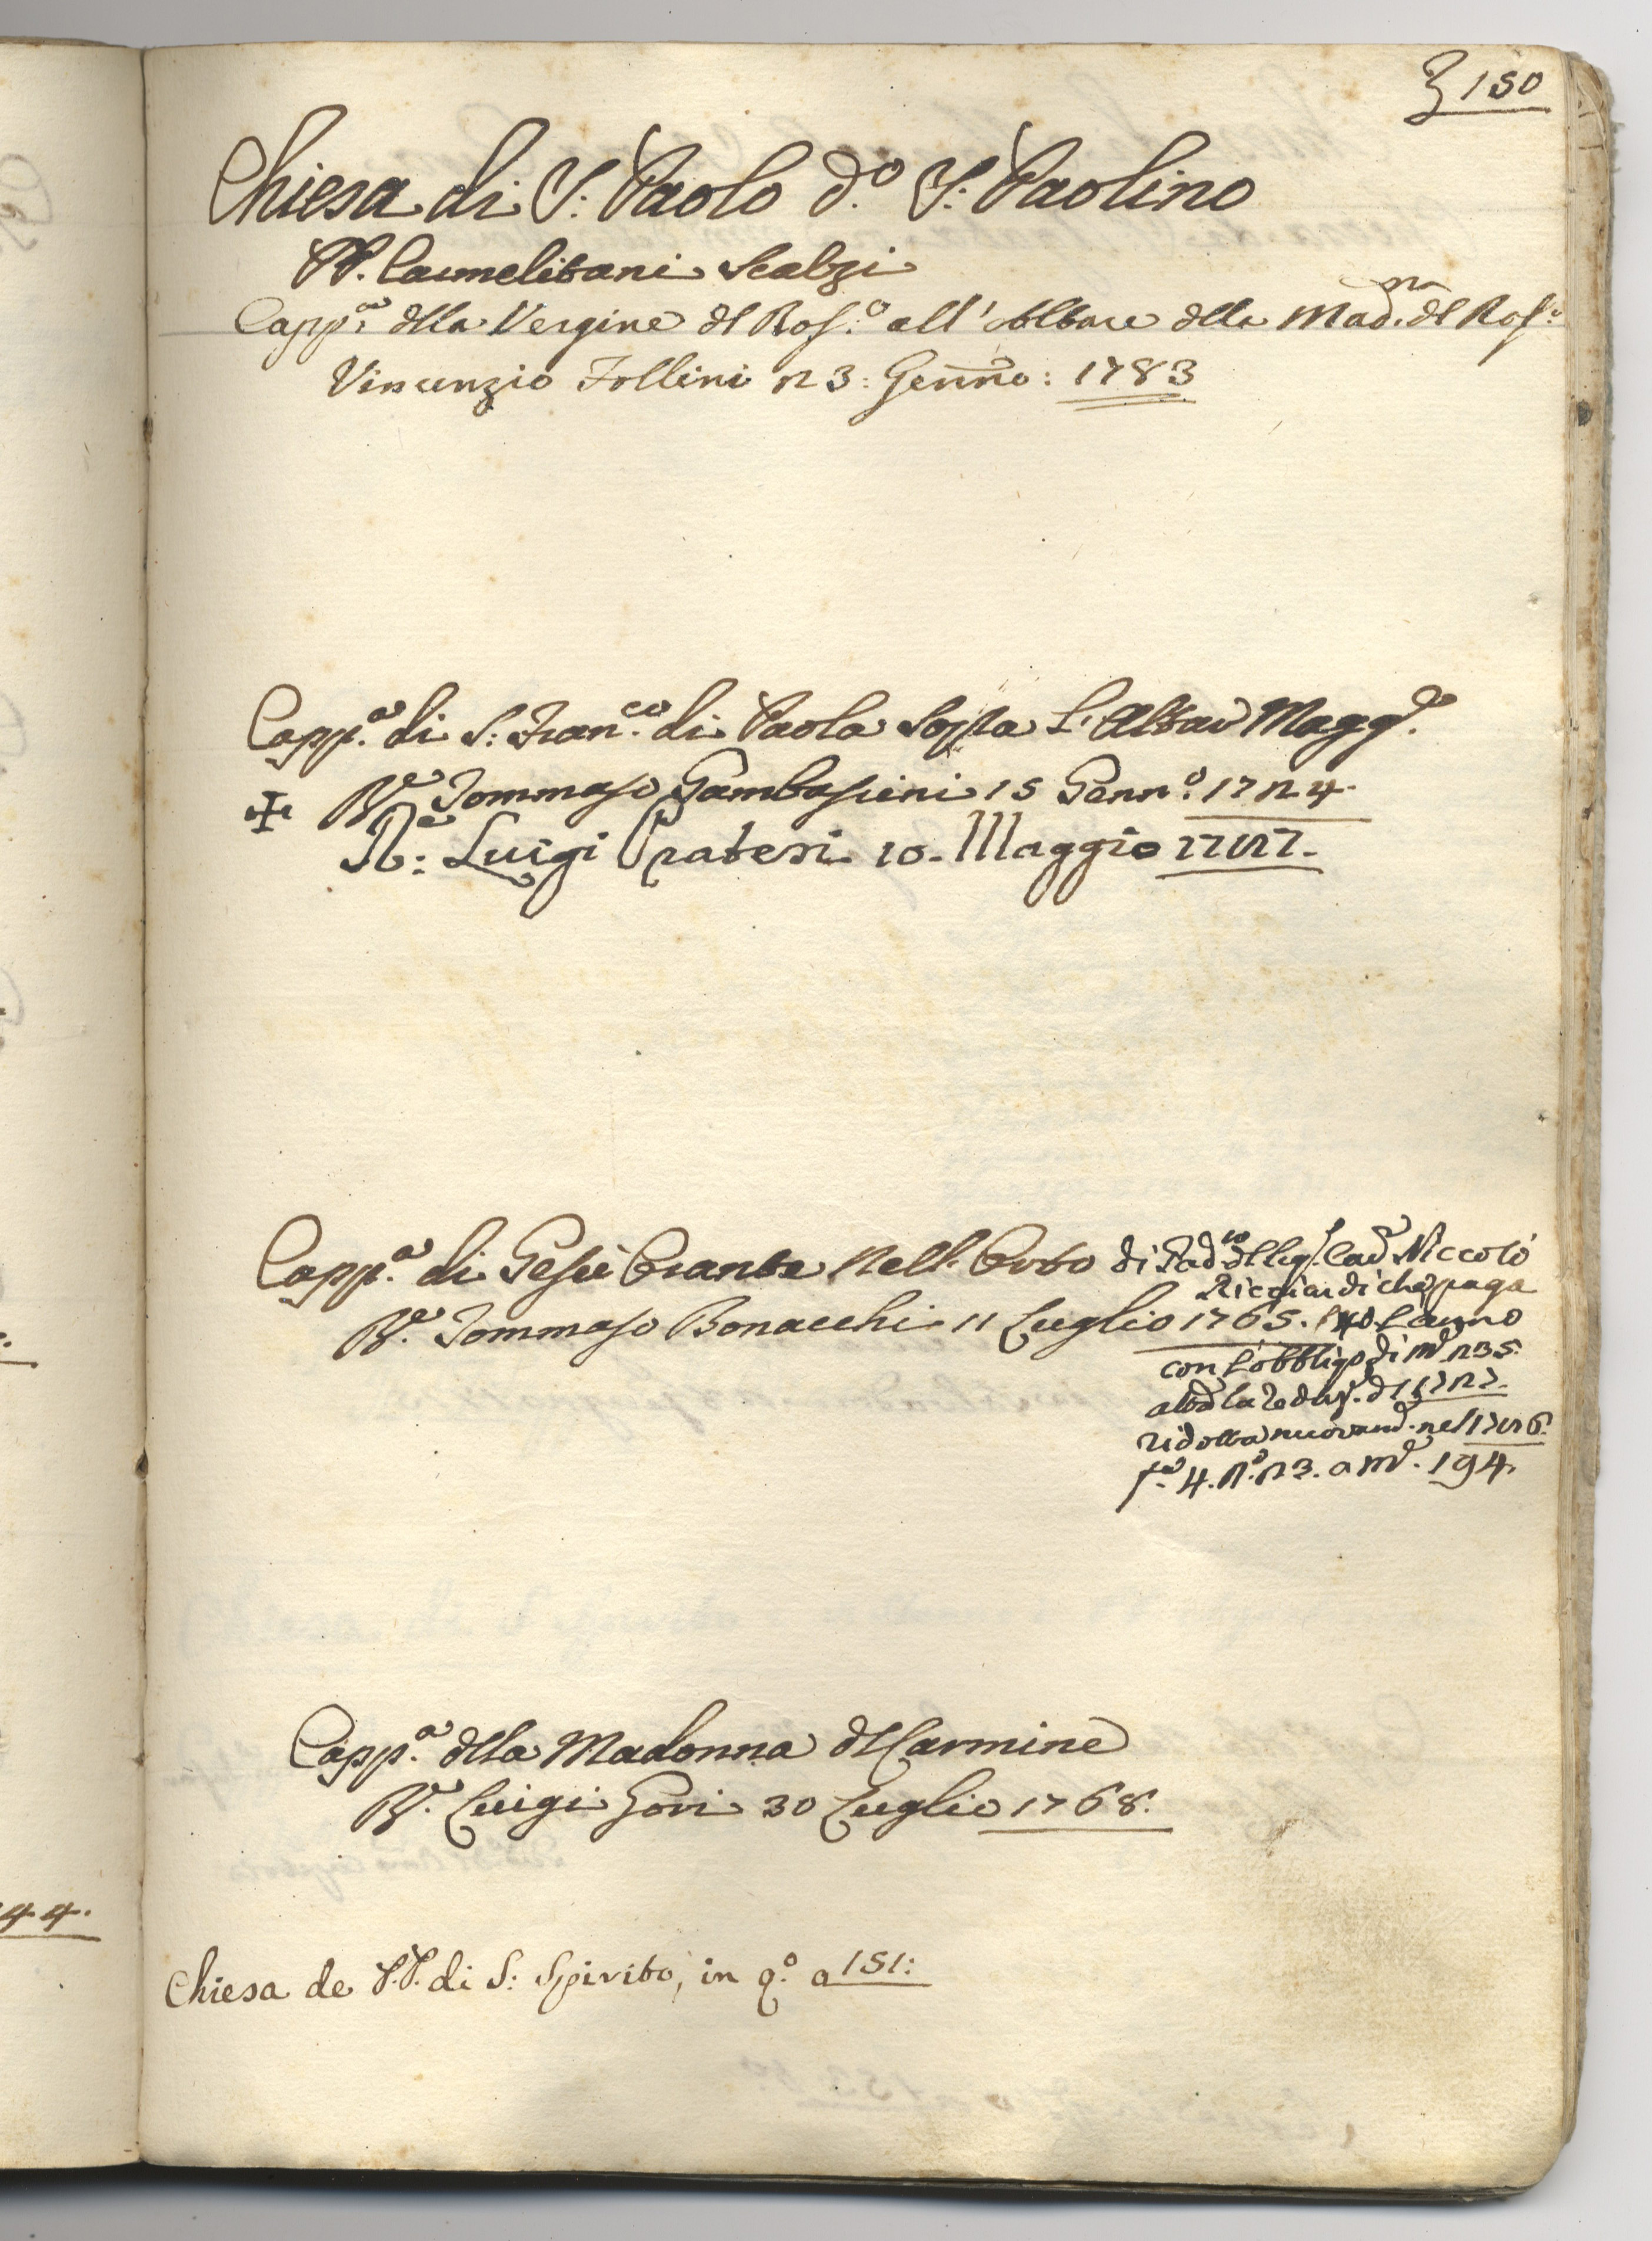 150
Chiesa di S: Paolo d.o S: Paolino
PP. Carmelitani Scalzi
Capp.a dlla Vergine dl Ros.o all'Altare dlla Mad.na dl Ros.o
Vincenzio Follini 23: Genno: 1783
Capp.a di S: Fran.co di Paola Posta L'Altar Magg.e
✠ R.e Tommaso Gambassini 15 Genn.o 1724.
R.e: Luigi Pratesi 10. Maggio 1727.
Capp.a di Gesù Orante nell'Orto di Pad.to dll Cav.e Niccolò
Ricciardi che paga
R.e Tommaso Bonacchi 11 Luglio 1765. L'anno
con l'obbligo di 235.
nel
4. N.o 23. a 194.
Capp.a dlla Madonna dl Carmine
R.e Luigi Gori 30 Luglio 1768.
Chiesa de P.P. di S: Spirito, in q.o a 151:
44.